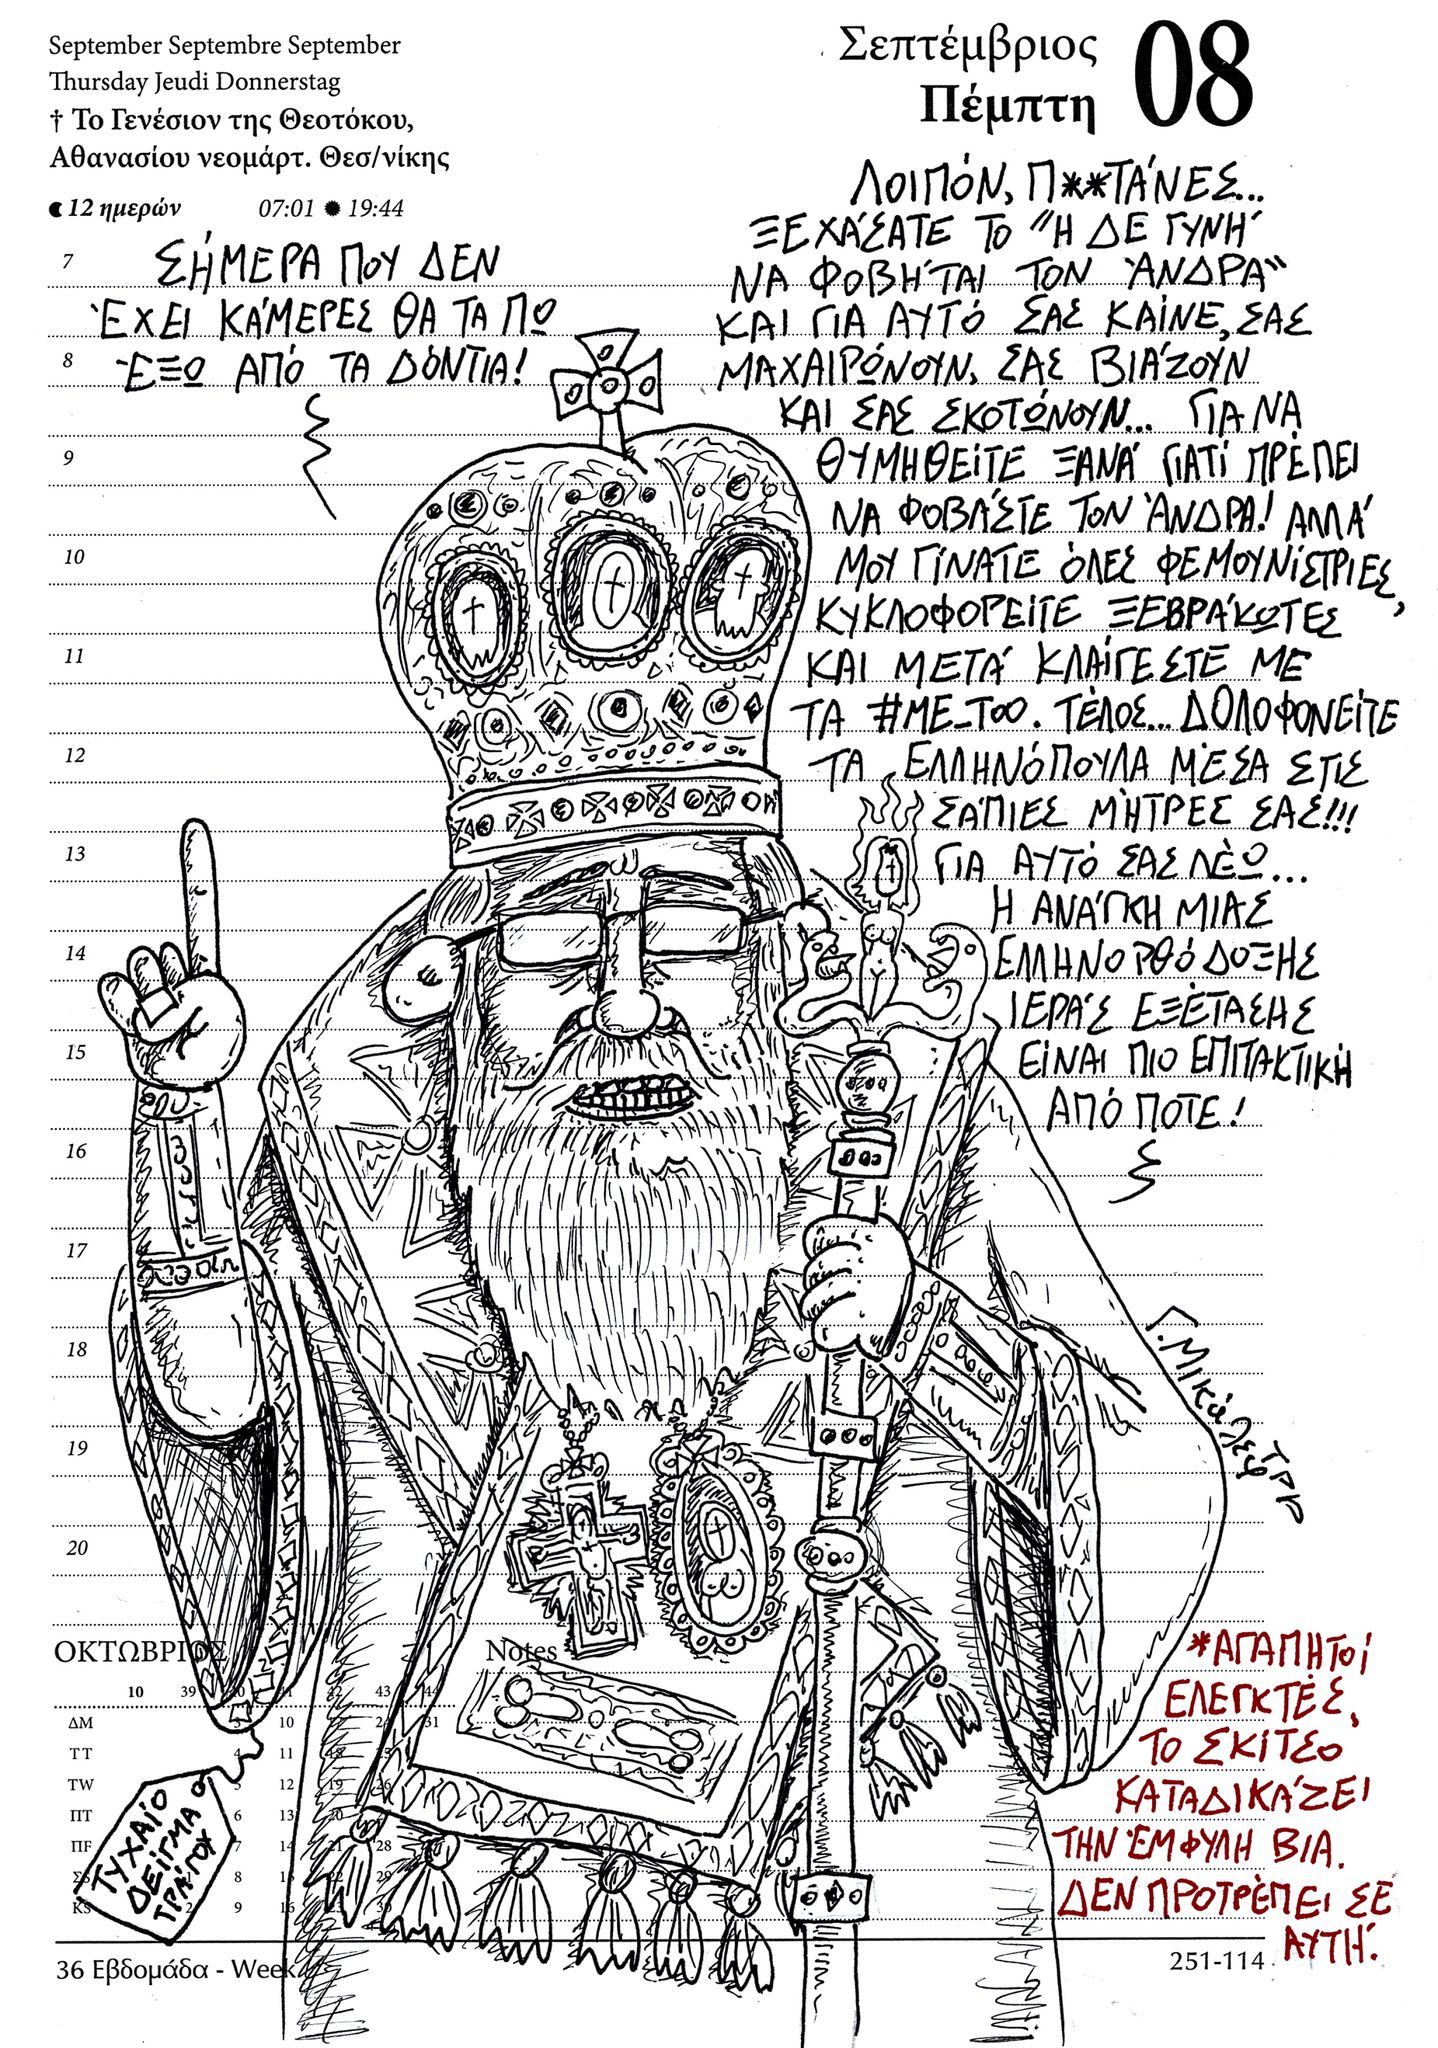 September Septembre September
Thursday Jeudi Donnerstag
† Το Γενέσιον της Θεοτόκου,
Αθανασίου νεομάρτ. Θεσ/νίκης
12 ημερών 07:01 19:44
Σεπτέμβριος
Πέμπτη
08
ΣΉΜΕΡΑ ΠΟΥ ΔΕΝ
ΈΧΕΙ ΚΆΜΕΡΕΣ ΘΑ ΤΑ ΠΩ
ΈΞΩ ΑΠΌ ΤΑ ΔΌΝΤΙΑ!
ΛΟΙΠΌΝ, Π**ΤΆΝΕΣ...
ΞΕΧΆΣΑΤΕ ΤΟ "Η ΔΕ ΓΥΝΗ
ΝΑ ΦΟΒΉΤΑΙ ΤΟΝ ΆΝΔΡΑ"
ΚΑΙ ΓΙΑ ΑΥΤΌ ΣΑΣ ΚΑΊΝΕ, ΣΑΣ
ΜΑΧΑΙΡΏΝΟΥΝ, ΣΑΣ ΒΙΆΖΟΥΝ
ΚΑΙ ΣΑΣ ΣΚΟΤΏΝΟΥΝ... ΓΙΑ ΝΑ
ΘΥΜΗΘΕΊΤΕ ΞΑΝΆ ΓΙΑΤΊ ΠΡΈΠΕΙ
ΝΑ ΦΟΒΆΣΤΕ ΤΟΝ ΆΝΔΡΑ! ΑΛΛΆ
ΜΟΥ ΓΊΝΑΤΕ ΌΛΕΣ ΦΕΜΟΥΝΊΣΤΡΙΕΣ,
ΚΥΚΛΟΦΟΡΕΊΤΕ ΞΕΒΡΆΚΩΤΕΣ
ΚΑΙ ΜΕΤΆ ΚΛΑΊΓΕΣΤΕ ΜΕ
ΤΑ #ME_TOO. ΤΈΛΟΣ... ΔΟΛΟΦΟΝΕΊΤΕ
ΤΑ ΕΛΛΗΝΌΠΟΥΛΑ ΜΈΣΑ ΣΤΙΣ
ΣΆΠΙΕΣ ΜΉΤΡΕΣ ΣΑΣ!!!
ΓΙΑ ΑΥΤΌ ΣΑΣ ΛΈΩ...
Η ΑΝΆΓΚΗ ΜΙΑΣ
ΕΛΛΗΝΟΡΘΌΔΟΞΗΣ
ΙΕΡΆΣ ΕΞΈΤΑΣΗΣ
ΕΊΝΑΙ ΠΙΟ ΕΠΙΤΑΚΤΙΚΉ
ΑΠΌ ΠΟΤΈ!
7
8
9
10
11
12
13
14
15
16
17
18
19
20
Γ. Μικάλεφ
ΤΡΓ
ΟΚΤΩΒΡΙΟΣ
Notes
10 39 40 41 42 43 44
ΔΜ 3 10 24 31
ΤΤ 4 11 18 25
TW 5 12 19 26
ΠΤ 6 13 20
ΠF 7 14 21 28
8 15 22 29
ΚS 2 9 16 23 30
ΤΥΧΑΊΟ
ΔΕΊΓΜΑ
ΤΡΆΓΟΥ
*ΑΓΑΠΗΤΟΊ
ΕΛΕΓΚΤΈΣ,
ΤΟ ΣΚΊΤΣΟ
ΚΑΤΑΔΙΚΆΖΕΙ
ΤΗΝ ΈΜΦΥΛΗ ΒΙΑ.
ΔΕΝ ΠΡΟΤΡΈΠΕΙ ΣΕ
ΑΥΤΉ.
36 Εβδομάδα - Week
251-114